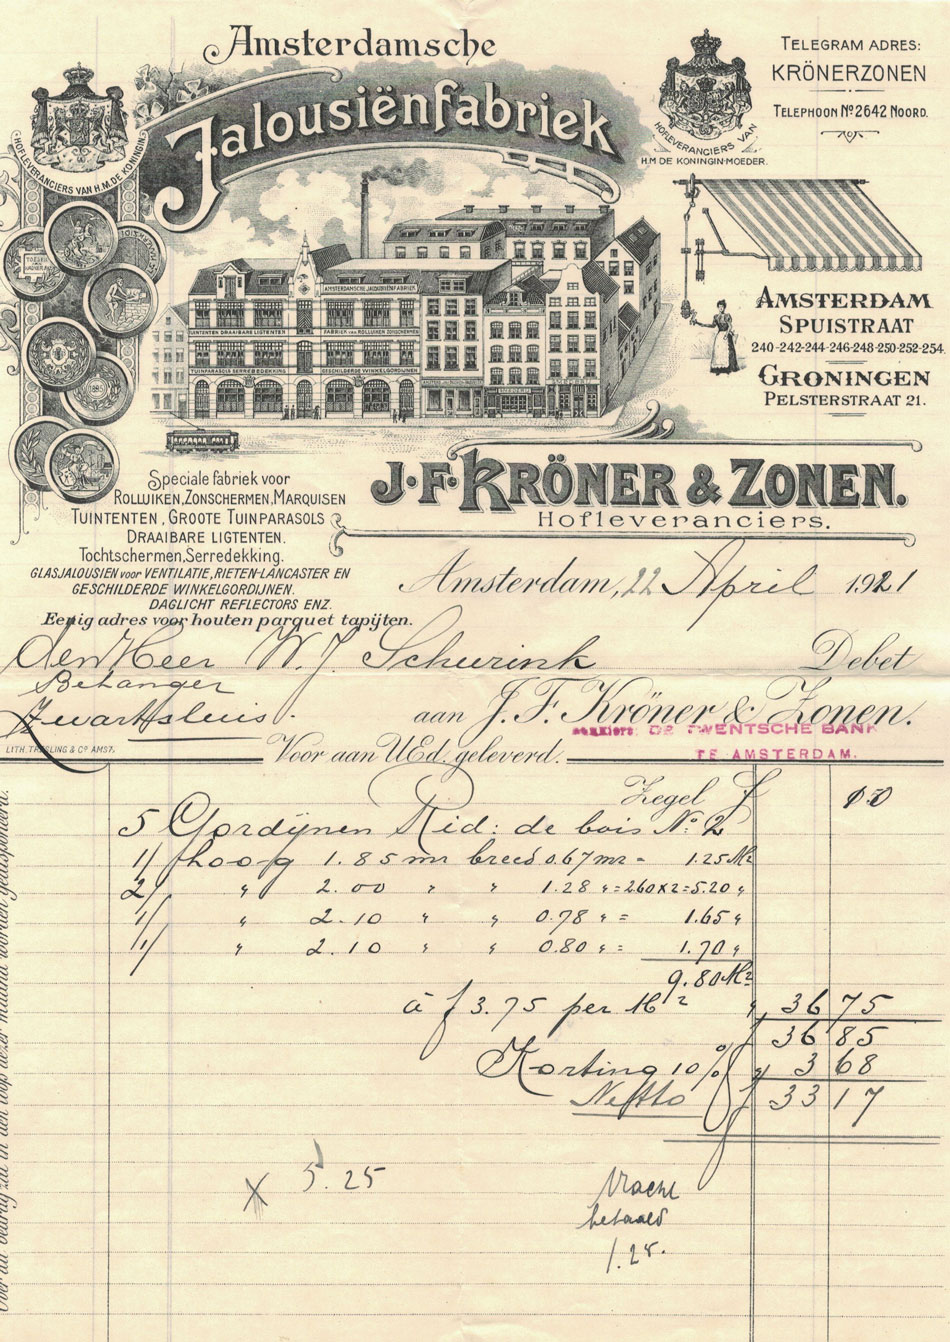 Amsterdamsche
Jalousiënfabriek
HOFLEVERANCIERS VAN H.M. DE KONINGIN
HOFLEVERANCIERS VAN
H.M DE KONINGIN-MOEDER.
TELEGRAM ADRES:
KRÖNERZONEN
TELEPHOON No 2642 NOORD.
AMSTERDAM
SPUISTRAAT
240-242-244-246-248-250-252-254.
GRONINGEN
PELSTERSTRAAT 21.
AMSTERDAMSCHE JALOUSIËNFABRIEK
TENTEN DRAAIBARE LIGTENTEN
FABRIEK VAN ROLLUIKEN ZONSCHERMEN
TUINPARASOLS SERREBEDEKKING
GESCHILDERDE WINKELGORDIJNEN
J.F. KRÖNER & ZONEN.
Hofleveranciers.
Speciale fabriek voor
ROLLUIKEN, ZONSCHERMEN, MARQUISEN
TUINTENTEN, GROOTE TUINPARASOLS
DRAAIBARE LIGTENTEN.
Tochtschermen, Serredekking.
GLASJALOUSIEN voor VENTILATIE, RIETEN-LANCASTER EN
GESCHILDERDE WINKELGORDIJNEN.
DAGLICHT REFLECTORS ENZ.
Eenig adres voor houten parquet tapijten.
Amsterdam, 22 April 1921
den Heer W. J. Scheurink Debet
Behanger
Zwartsluis.
aan J. F. Kröner & Zonen.
DE TWENTSCHE BANK
TE AMSTERDAM.
LITH. TRESLING & Co AMST.
Voor aan UEd. geleverd.
Zegel f 10
5 Gordijnen Rid: de bois No 2
1/ hoog 1.85 mr breed 0.67 mr = 1.25 M2
2/ " 2.00 " " 1.28 " = 260 x 2 = 5.20 "
1/ " 2.10 " " 0.78 " = 1.65 "
1/ " 2.10 " " 0.80 " = 1.70 "
9.80 M2
à f 3.75 per M2 " 36 75
f 36 85
Korting 10% " 3 68
Netto f 33 17
x 5.25
Vracht
betaald
1.25.
Over dit bedrag zal in den loop dezer maand worden gedisponeerd.